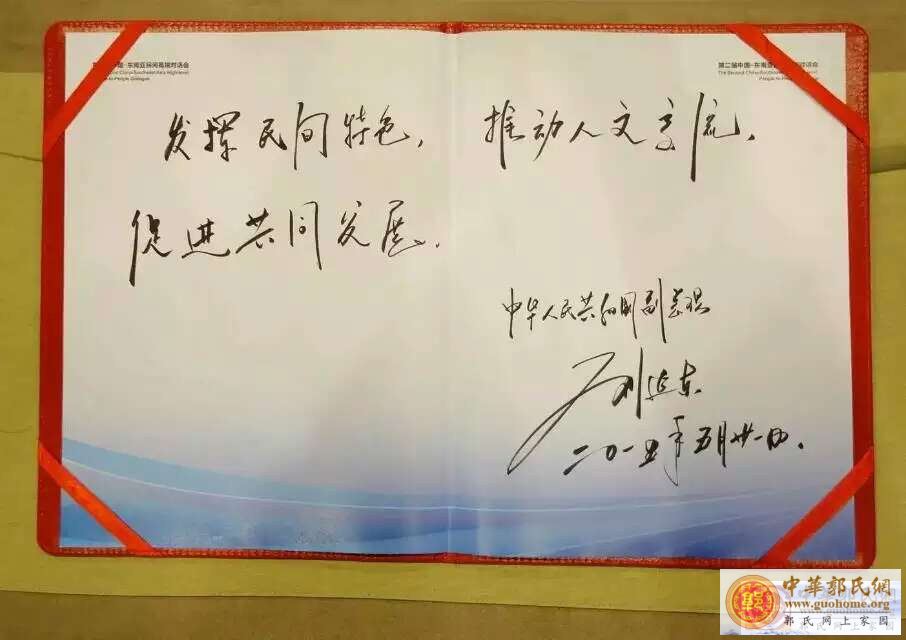 国-东南亚民间高端对话会
China-Southeast Asia High-level
to-People Dialogue
第二届中国-东南亚
对话会
The Second China-Southeast
People-to
发挥民间特色, 推动人文交流,
促进共同发展.
中华人民共和国副总理
刘延东
二〇一五年五月廿一日.
中華郭氏網
www.guohome.org
郭氏网上家园